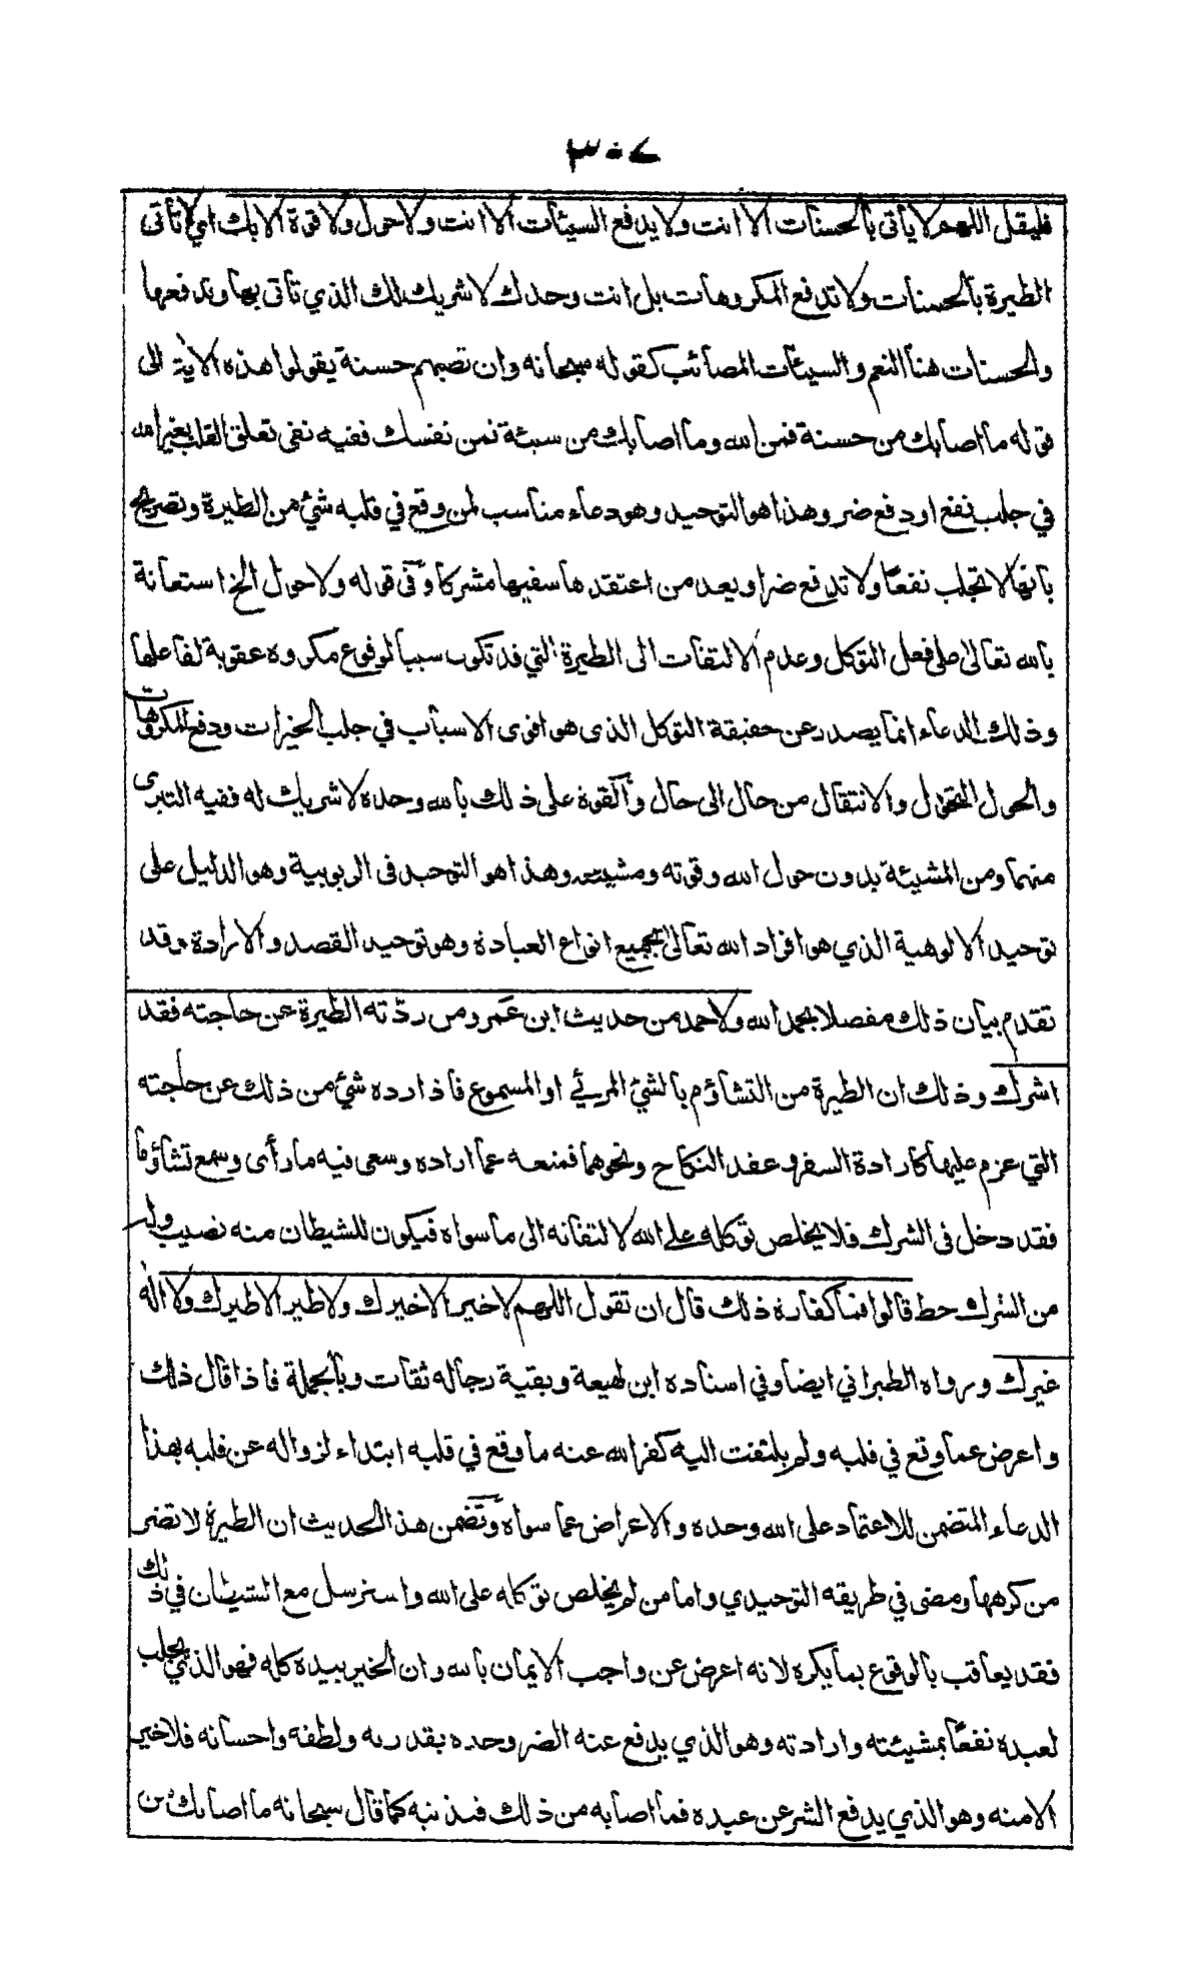 ٣٠٧
فليقل اللهم لا يأتي بالحسنات الا انت ولا يدفع السيئات الا انت ولا حول ولا قوة الا بك اي لا تأتي
الطيرة بالحسنات ولا تدفع المكروهات بل انت وحدك لا شريك لك الذي تأتي بها وتدفعها
والحسنات هنا النعم والسيئات المصائب كقوله سبحانه وان تصبهم حسنة يقولوا هذه الآية الى
قوله ما اصابك من حسنة فمن الله وما اصابك من سيئة فمن نفسك ففيه نفي تعلق القلب بغير الله
في جلب نفع او دفع ضر وهذا هو التوحيد وهو دعاء مناسب لمن وقع في قلبه شيء من الطيرة وتصريح
بانها لا تجلب نفعًا ولا تدفع ضرا ويعد من اعتقدها سفيها مشركا وفي قوله ولا حول الخ استعانة
بالله تعالى على فعل التوكل وعدم الالتفات الى الطيرة التي قد تكون سببا لوقوع مكروه عقوبة لفاعلها
وذلك الدعاء انما يصدر عن حقيقة التوكل الذى هو اقوى الاسباب في جلب الخيرات ودفع المكروهات
والحول التحول والانتقال من حال الى حال والقوة على ذلك بالله وحده لا شريك له ففيه التبرى
منهما ومن المشيئة بدون حول الله وقوته ومشيته وهذا هو التوحيد فى الربوبية وهو الدليل على
توحيد الالوهية الذي هو افراد الله تعالى بجميع انواع العبادة وهو توحيد القصد والارادة وقد
تقدم بيان ذلك مفصلا بحمد الله ولاحمد من حديث ابن عمرو من ردّته الطيرة عن حاجته فقد
اشرك وذلك ان الطيرة من التشاؤم بالشيئ المرئي او المسموع فاذا رده شيئ من ذلك عن حاجته
التي عزم عليها كارادة السفر وعقد النكاح ونحوهما فمنعه عما اراده وسعى فيه ما رأى وسمع تشاؤما
فقد دخل فى الشرك فلا يخلص توكله على الله لالتفاته الى ما سواه فيكون للشيطان منه نصيب وله
من الشرك حظ قالوا فما كفارة ذلك قال ان تقول اللهم لا خير الا خيرك ولا طير الا طيرك ولا اله
غيرك ورواه الطبراني ايضا وفي اسناده ابن لهيعة وبقية رجاله ثقات وبالجملة فاذا قال ذلك
واعرض عما وقع في قلبه ولم يلتفت اليه كفر الله عنه ما وقع في قلبه ابتداء لزواله عن قلبه بهذا
الدعاء المتضمن للاعتماد على الله وحده والاعراض عما سواه وتضمن هذا الحديث ان الطيرة لا تضر
من كرهها ومضى في طريقه التوحيدي واما من لم يخلص توكله على الله واسترسل مع الشيطان في ذلك
فقد يعاقب بالوقوع بما يكره لانه اعرض عن واجب الايمان بالله وان الخير بيده كله فهو الذي يجلب
لعبده نفعًا بمشيئته وارادته وهو الذي يدفع عنه الضر وحده بقدرته ولطفه واحسانه فلا خير
الا منه وهو الذي يدفع الشر عن عبده فما اصابه من ذلك فبذنبه كما قال سبحانه ما اصابك من